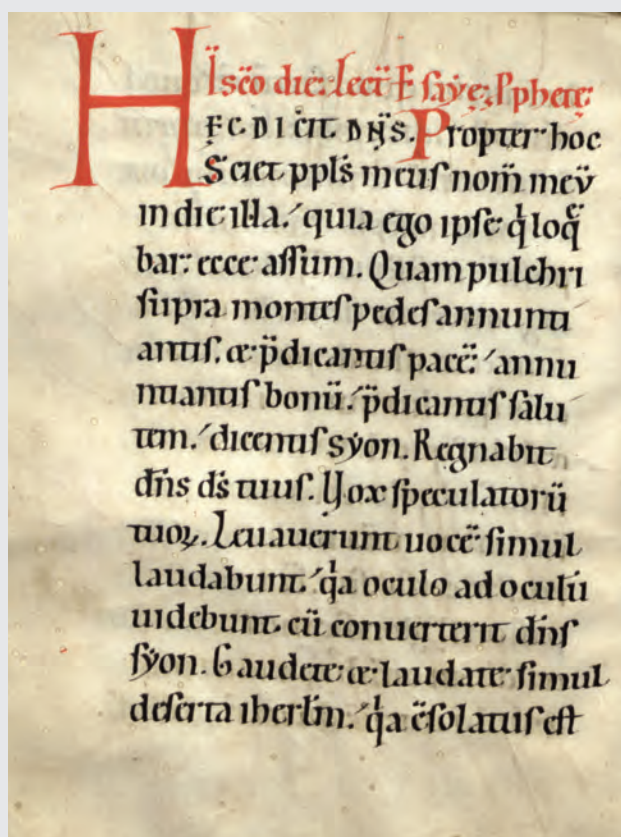 I sc̄o die. lect̄ Esaẏę ꝓphetę.
HĘC DICIT DN̄S. Propter hoc
Sciet ppl̄s meus nom̄ meū
in die illa. quia ego ipse qͥ loq̄
bar. ecce assum. Quam pulchri
supra montes pedes annunti
antis. et p̄dicantis pacē. annu
ntiantis bonū. p̄dicantis salu
tem. dicentis sẏon. Regnabit
dn̄s ds̄ tuus. Vox speculatorū
tuoꝝ. Leuauerunt uocē simul
laudabunt. qͥa oculo ad oculū
uidebunt. cū conuerterit dn̄s
sẏon. Gaudete et laudate simul
deserta iherl̄m. qͥa c̄solatus est